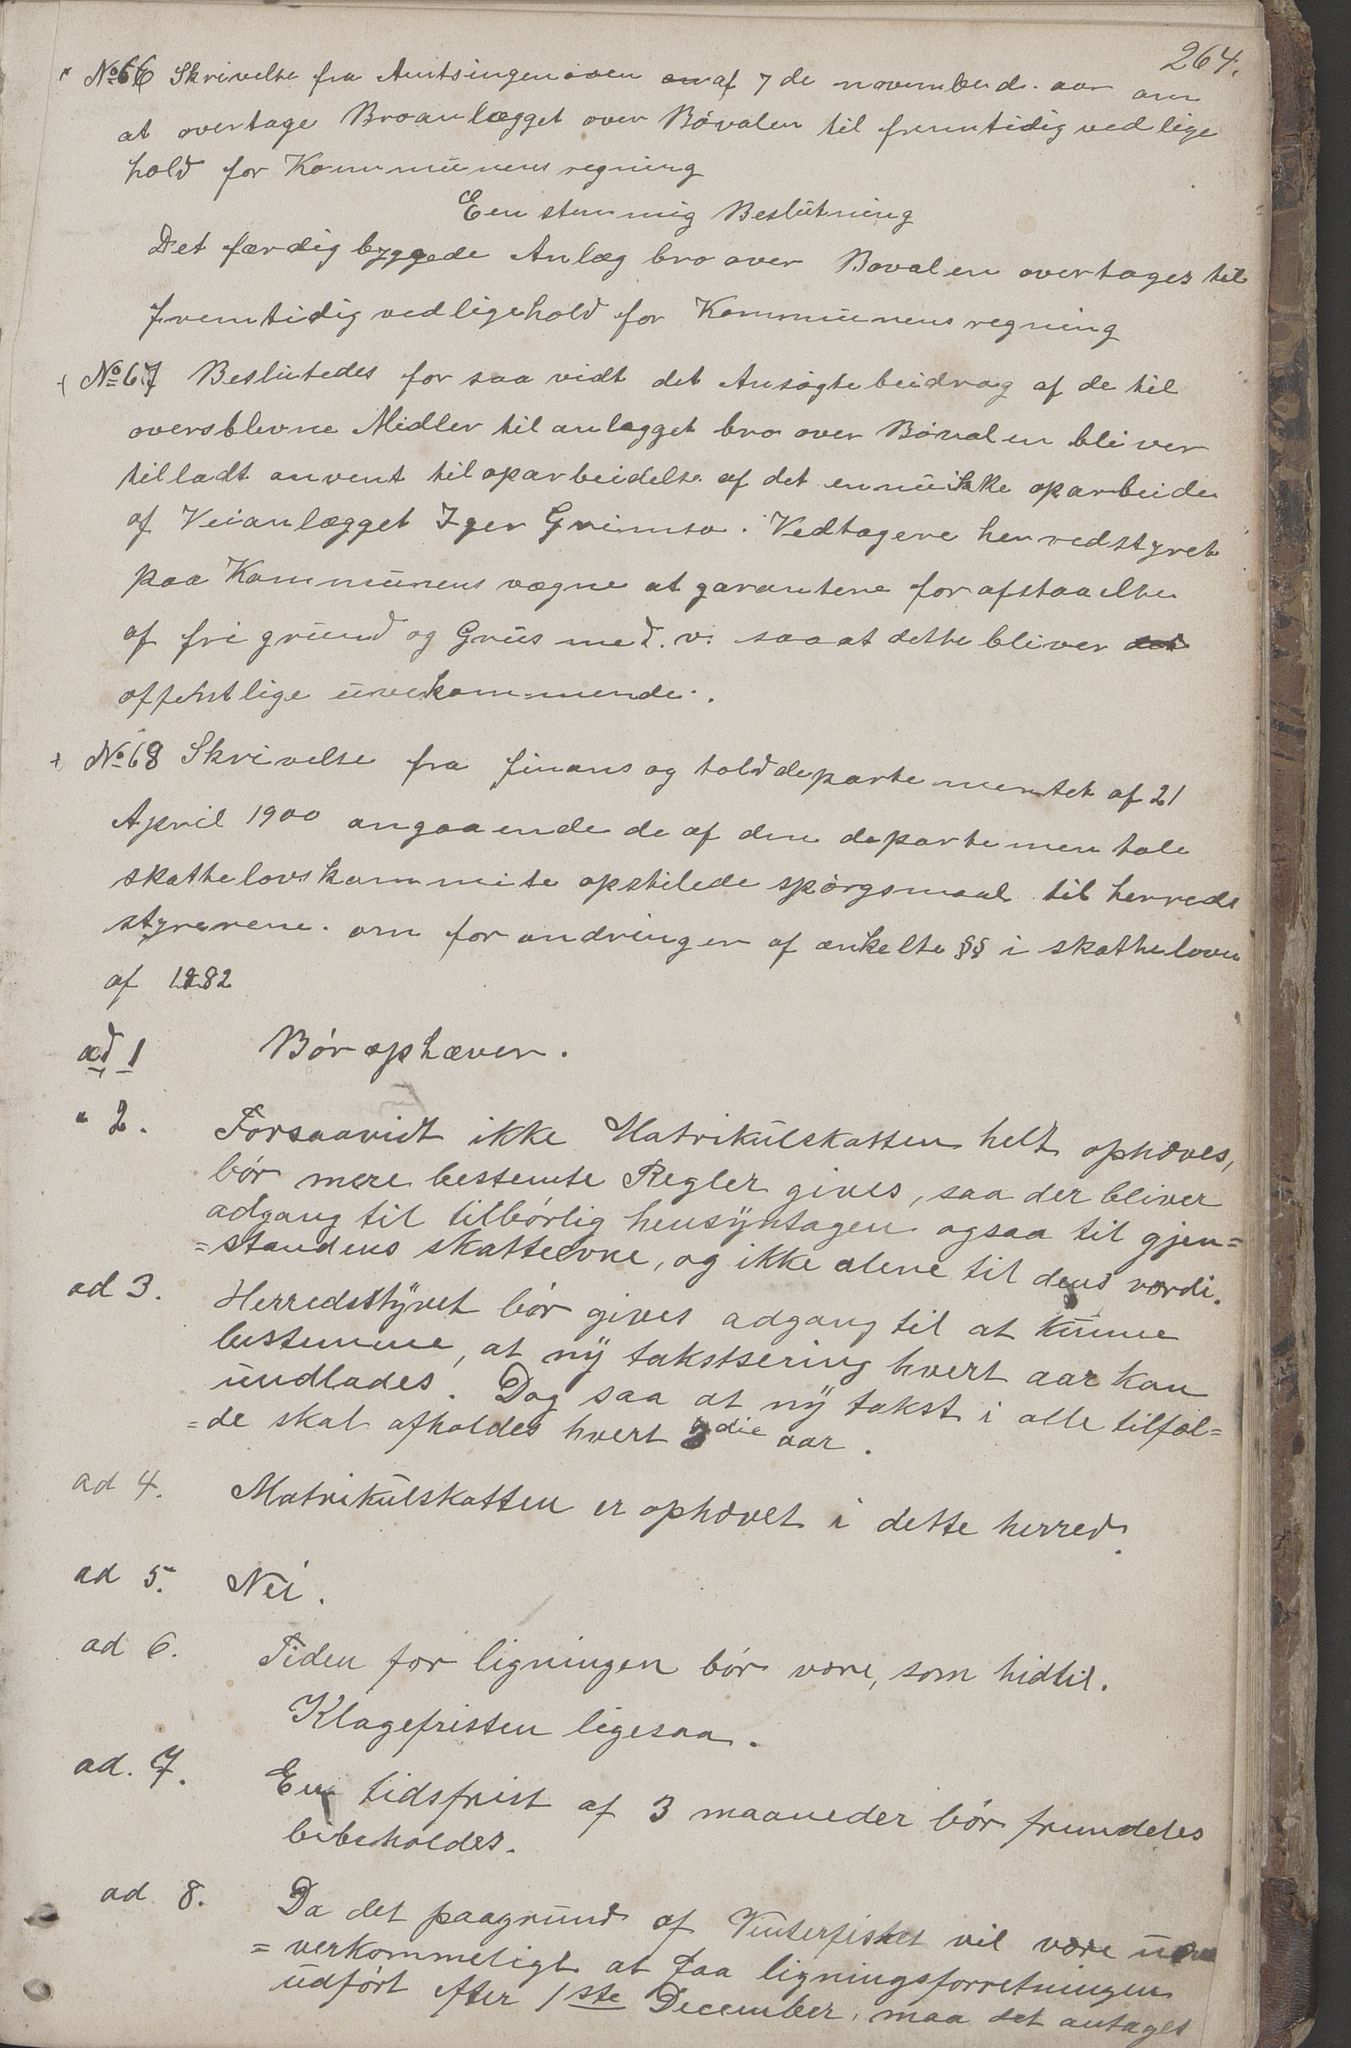 264.
" No 66 Skrivelse fra Amtsingeniøren af 7 de novemb. d. aar om
at overtage Broanlægget over Bövalen til fremtidig vedlige
hold for Kommunens regning
Eenstemmig Beslutning
Det færdig byggede Anlæg bro over Bovalen overtages til
fremtidig vedligehold for Kommunens regning
No 67 Beslutedes for saa vidt det Ansøgte beidrag af de til
oversblevne Midler til anlægget bro over Bövalen bliver
tilladt anvent til oparbeidelse af det ennu ikke oparbeide
af Veianlægget Iger Grimso. Vedtagere herredstyret
paa Kommunens vægne at garantere for afstaaelse
af fri grund og Grus med. v. saa at dette bliver det
offentlige uvekommende.
+ No 68 Skrivelse fra finans og tolddepartementet af 21
April 1900 angaaende de af den departementale
skattelovskommite opstilede spørgsmaal til herreds
styrerene. om forandringer af ænkelte §§ i skatteloven
af 1882
ad 1 Bör ophæver.
" 2. Forsaavidt ikke Matrikulskatten helt ophæves,
bør mere bestemte Regler gives, saa der bliver
adgang til tilbørlig hensyntagen ogsaa til gjen=
=standens skatteevne, og ikke alene til dens værdi.
ad 3. Herredsstyret bør gives adgang til at kunne
bestemme, at ny takstsering hvert aar kan
undlades. Dog saa at ny takst i alle tilfæl=
=de skal afholdes hvert 3die aar.
ad 4. Matrikulskatten er ophævet i dette herred.
ad 5. Nei.
ad 6. Tiden for ligningen bör være, som hidtil.
Klagefristen ligesaa.
ad. 7. En tidsfrist af 3 maaneder bör fremdeles
bibeholdes.
ad 8. Da det paagrund af Vinterfisket vil være uover
=verkommeligt at faa ligningsforretningen
udført efter 1ste December, maa det antages